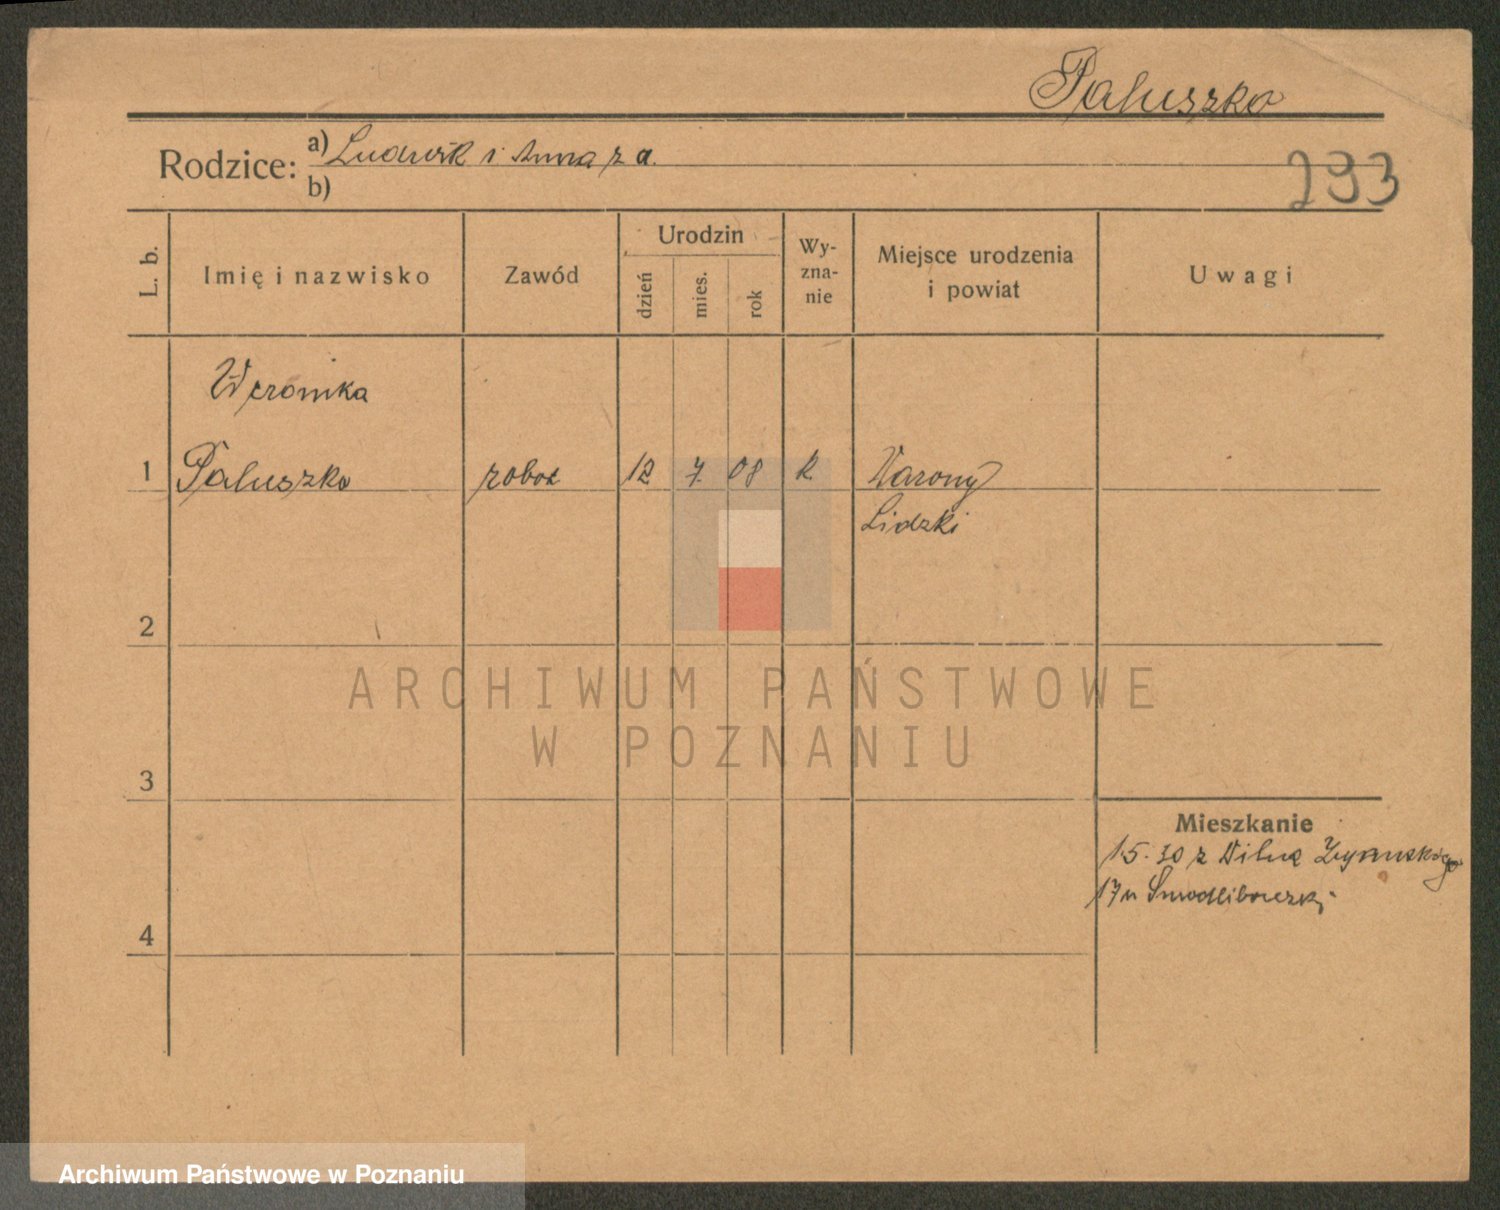 Paluszko
Rodzice: a) Ludwik i Anna z d.
b)
293
L. b.
Imię i nazwisko
Zawód
Urodzin
dzień
mies.
rok
Wy-
zna-
nie
Miejsce urodzenia
i powiat
Uwagi
Weronika
1 Paluszko robot 12 7. 08 k. Warony
Lidzki
2
3
4
Mieszkanie
15. 30 z Wilna
17 u
ARCHIWUM PAŃSTWOWE
W POZNANIU
Archiwum Państwowe w Poznaniu